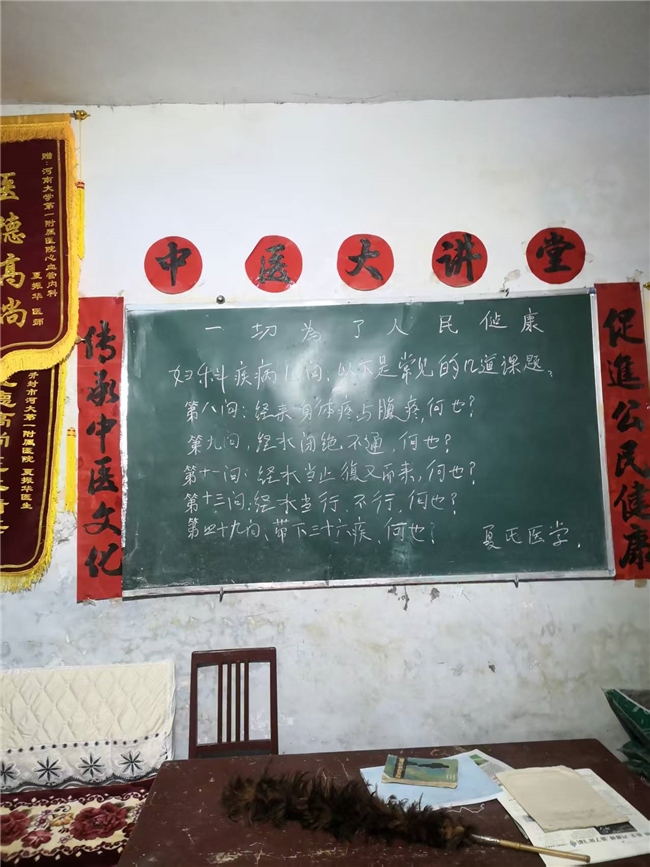 中医大讲堂
传承中医文化
促進公民健康
一切为了人民健康
妇科疾病几问,以下是常见的几道课题。
第八问:经来身体疼与腹疼,何也?
第九问,经水闭绝,不通,何也?
第十一问:经水当止復又而来,何也?
第十三问:经水当行,不行,何也?
第四十九问、带下三十六疾,何也?
夏氏医学.
赠:河南大学第一附属医院心血管内科
夏振华 医师
医德高尚
开封市河大第一附属医院 夏振华医生